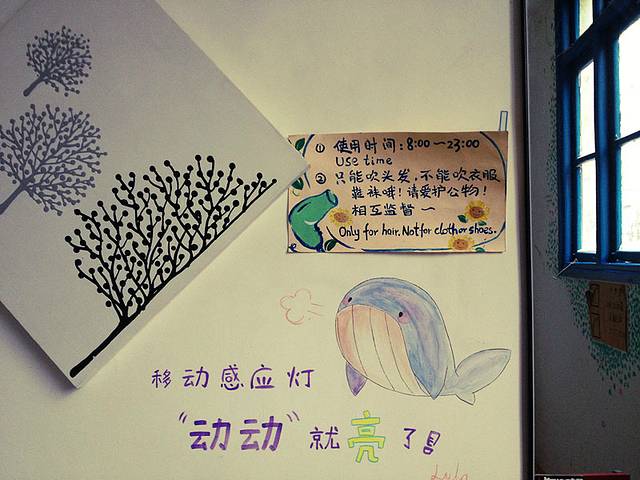 ① 使用时间:8:00~23:00
Use time
② 只能吹头发,不能吹衣服
鞋袜哦!请爱护公物!
相互监督~
Only for hair. Not for cloth or shoes.
移动感应灯
"动动"就亮了